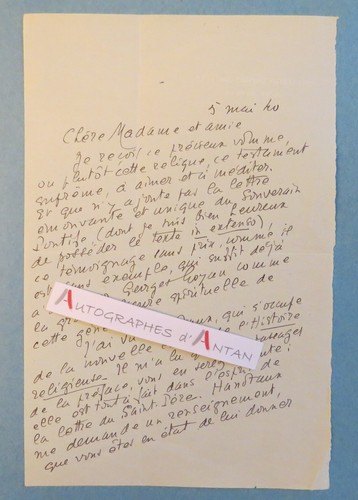 5 mai 40
Chère Madame et amie
Je reçois ce précieux volume,
ou plutôt cette relique, ce testament
suprême, à aimer et à méditer.
Et que n'y ajoute pas la lettre
émouvante et unique du Souverain
Pontife (dont je suis bien heureux
de posséder le texte in extenso),
ce témoignage sans prix, comme il
est sans exemple, qui suffit déjà
a Georges Goyau comme
spirituelle de
la
cette qui s'occupe
J'ai
de la nouvelle Histoire
religieuse. Il m'a lu passages
de la préface, vous en serez
elle est tout à fait dans l'esprit de
la lettre du Saint-Père. Hanotaux
me demande un renseignement,
que vous êtes en état de lui donner
AUTOGRAPHES d'ANTAN